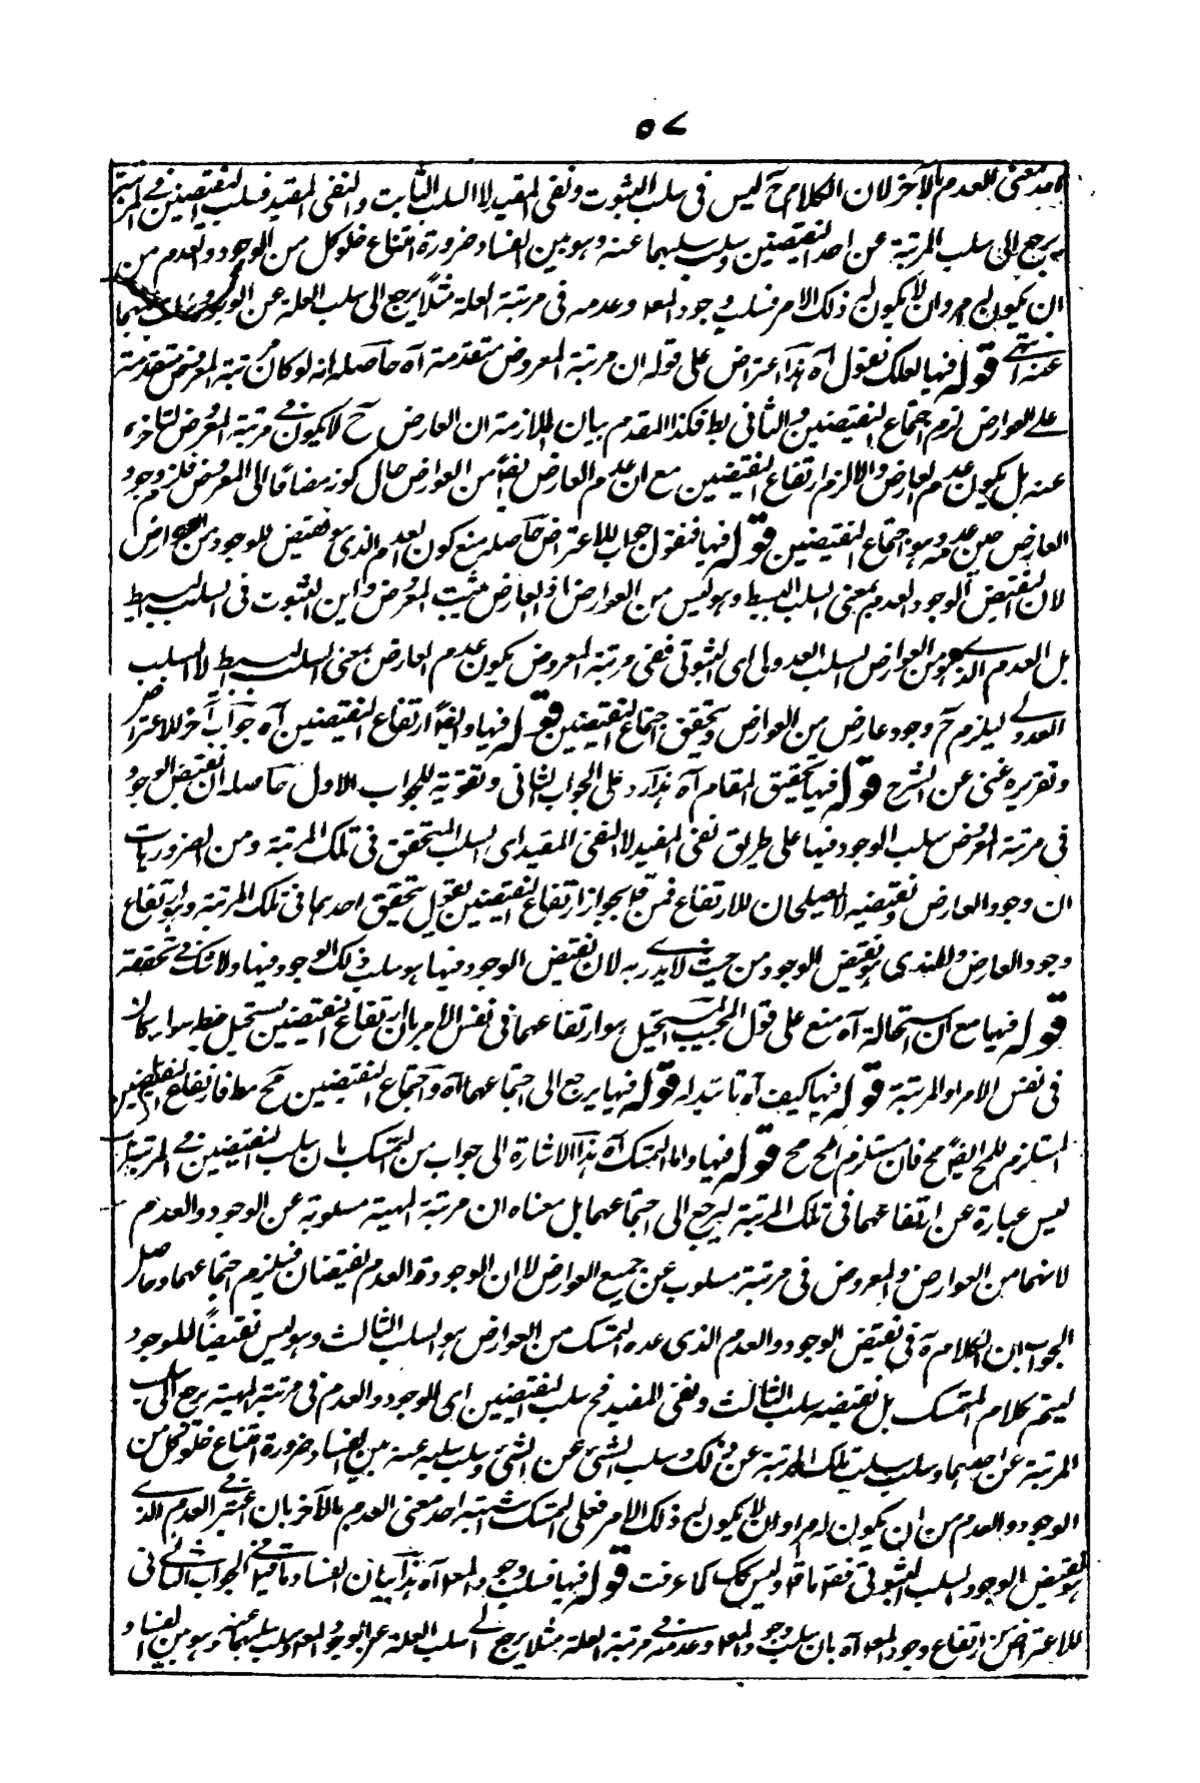 ٥٧
احد معنى العدم بالآخر لان الكلام ح ليس فى سلب الثبوت ونفى المقيد لا السلب الثابت والنفى المقيد فسلب النقيضين فى المرتبة
يرجع الى سلب المرتبة عن احد النقيضين وسلب سلبهما عنه وهو بين الفساد ضرورة امتناع خلو كل من الوجود والعدم من
ان يكون له مر وان لا يكون له ذلك الامر فسلب وجود المعلول وعدمه فى مرتبة العلة مثلًا يرجع الى سلب العلة عن الوجود وسلب سلبهما
عنه انتهى قوله فيها لعلك تقول آه هذا اعتراض على قوله ان مرتبة المعروض متقدمة آه حاصله انه لو كان مرتبة المعروض متقدمة
على العوارض لزم اجتماع النقيضين والثانى بط فكذا المقدم بيان الملازمة ان العارض ح لا يكون فى مرتبة المعروض لتاخره
عنه بل يكون عدم العارض والا لزم ارتفاع النقيضين مع ان عدم العارض ايضًا من العوارض حال كونه مضافًا الى المعروض فلزم وجود
العارض حين عدمه وهو اجتماع النقيضين قوله فيها فنقول جواب للاعتراض حاصله منع كون العدم الذى هو نقيض للوجود من العوارض
لان النقيض الوجود العدم بمعنى السلب البسيط وهو ليس من العوارض اذ العارض مثبت للمعروض واين الثبوت فى السلب البسيط
بل العدم الذى هو من العوارض السلب العدولى اى الثبوتى ففى مرتبة المعروض يكون عدم العارض بمعنى السلب البسيط لا السلب
العدولى ليلزم ح وجود عارض من العوارض وتحقق اجتماع النقيضين قوله فيها وايضًا ارتفاع النقيضين آه جواب آخر للاعتراض
وتقريره غنى عن الشرح قوله فيها تحقيق المقام آه هذا رد على الجواب الثانى وتقوية للجواب الاول حاصله ان نقيض الوجود
فى مرتبة المعروض سلب الوجود فيها على طريق نفى المقيد لا النفى المقيد اى السلب المتحقق فى تلك المرتبة ومن الضروريات
ان وجود العارض ونقيضه لا يصلحان للارتفاع فمن قال بجواز ارتفاع النقيضين يقول بتحقق احدهما فى تلك المرتبة وهو ارتفاع
وجود العارض والمبتدى هو نقيض الوجود من حيث لا يدريه لان نقيض الوجود فيها هو سلب ذلك الوجود فيها ولا شك فى تحققه
قوله فيها مع ان استحالة آه منع على قول المجيب المستحيل هو ارتفاعهما فى نفس الامر بان ارتفاع النقيضين يستحيل مطلقا سواء كان
فى نفس الامر او المرتبة قوله فيها كيف آه تائيد له قوله فيها يرجع الى اجتماعهما آه واجتماع النقيضين مح مطلقا فارتفاع النقيضين
المستلزم للمح ايضًا مح فان مستلزم المح مح قوله فيها واما التمسك آه هذا الاشارة الى جواب من تمسك بان سلب النقيضين فى المرتبة
ليس عبارة عن ارتفاعهما فى تلك المرتبة ليرجع الى اجتماعهما بل معناه ان مرتبة المهية مسلوبة عن الوجود والعدم
لانهما من العوارض والمعروض فى مرتبة مسلوب عن جميع العوارض لا ان الوجود والعدم نقيضان فيلزم اجتماعهما وحاصل
الجواب ان الكلام فى نقيض الوجود والعدم الذى عده المتمسك من العوارض هو السلب الثابت وهو ليس نقيضًا للوجود
ليتم كلام المتمسك بل نقيضه سلب الثابت ونفى المقيد فح سلب النقيضين اى الوجود والعدم فى مرتبة المهية يرجع الى سلب
المرتبة عن احدهما وسلب سلب تلك المرتبة عن ذلك وسلب الشئ عن الشئ وسلب سلبه عنه بين الفساد ضرورة امتناع خلو كل من
الوجود والعدم من ان يكون له مر او ان لا يكون له ذلك الامر فعلى المتمسك اشتبه احد معنى العدم بالآخر بان اعتبر فى العدم الذى
هو نقيض الوجود السلب الثبوتى فقال ما قال وليس كك كما عرفت قوله فيها فسلب وجود المعلول آه هذا بيان الفساد ما قيل فى الجواب الثانى
للاعتراض من ارتفاع وجود المعلول آه بان سلب وجود المعلول وعدمه فى مرتبة العلة مثلا يرجع الى سلب العلة عن الوجود المعلول وسلب سلبهما عنه وهو بين الفساد